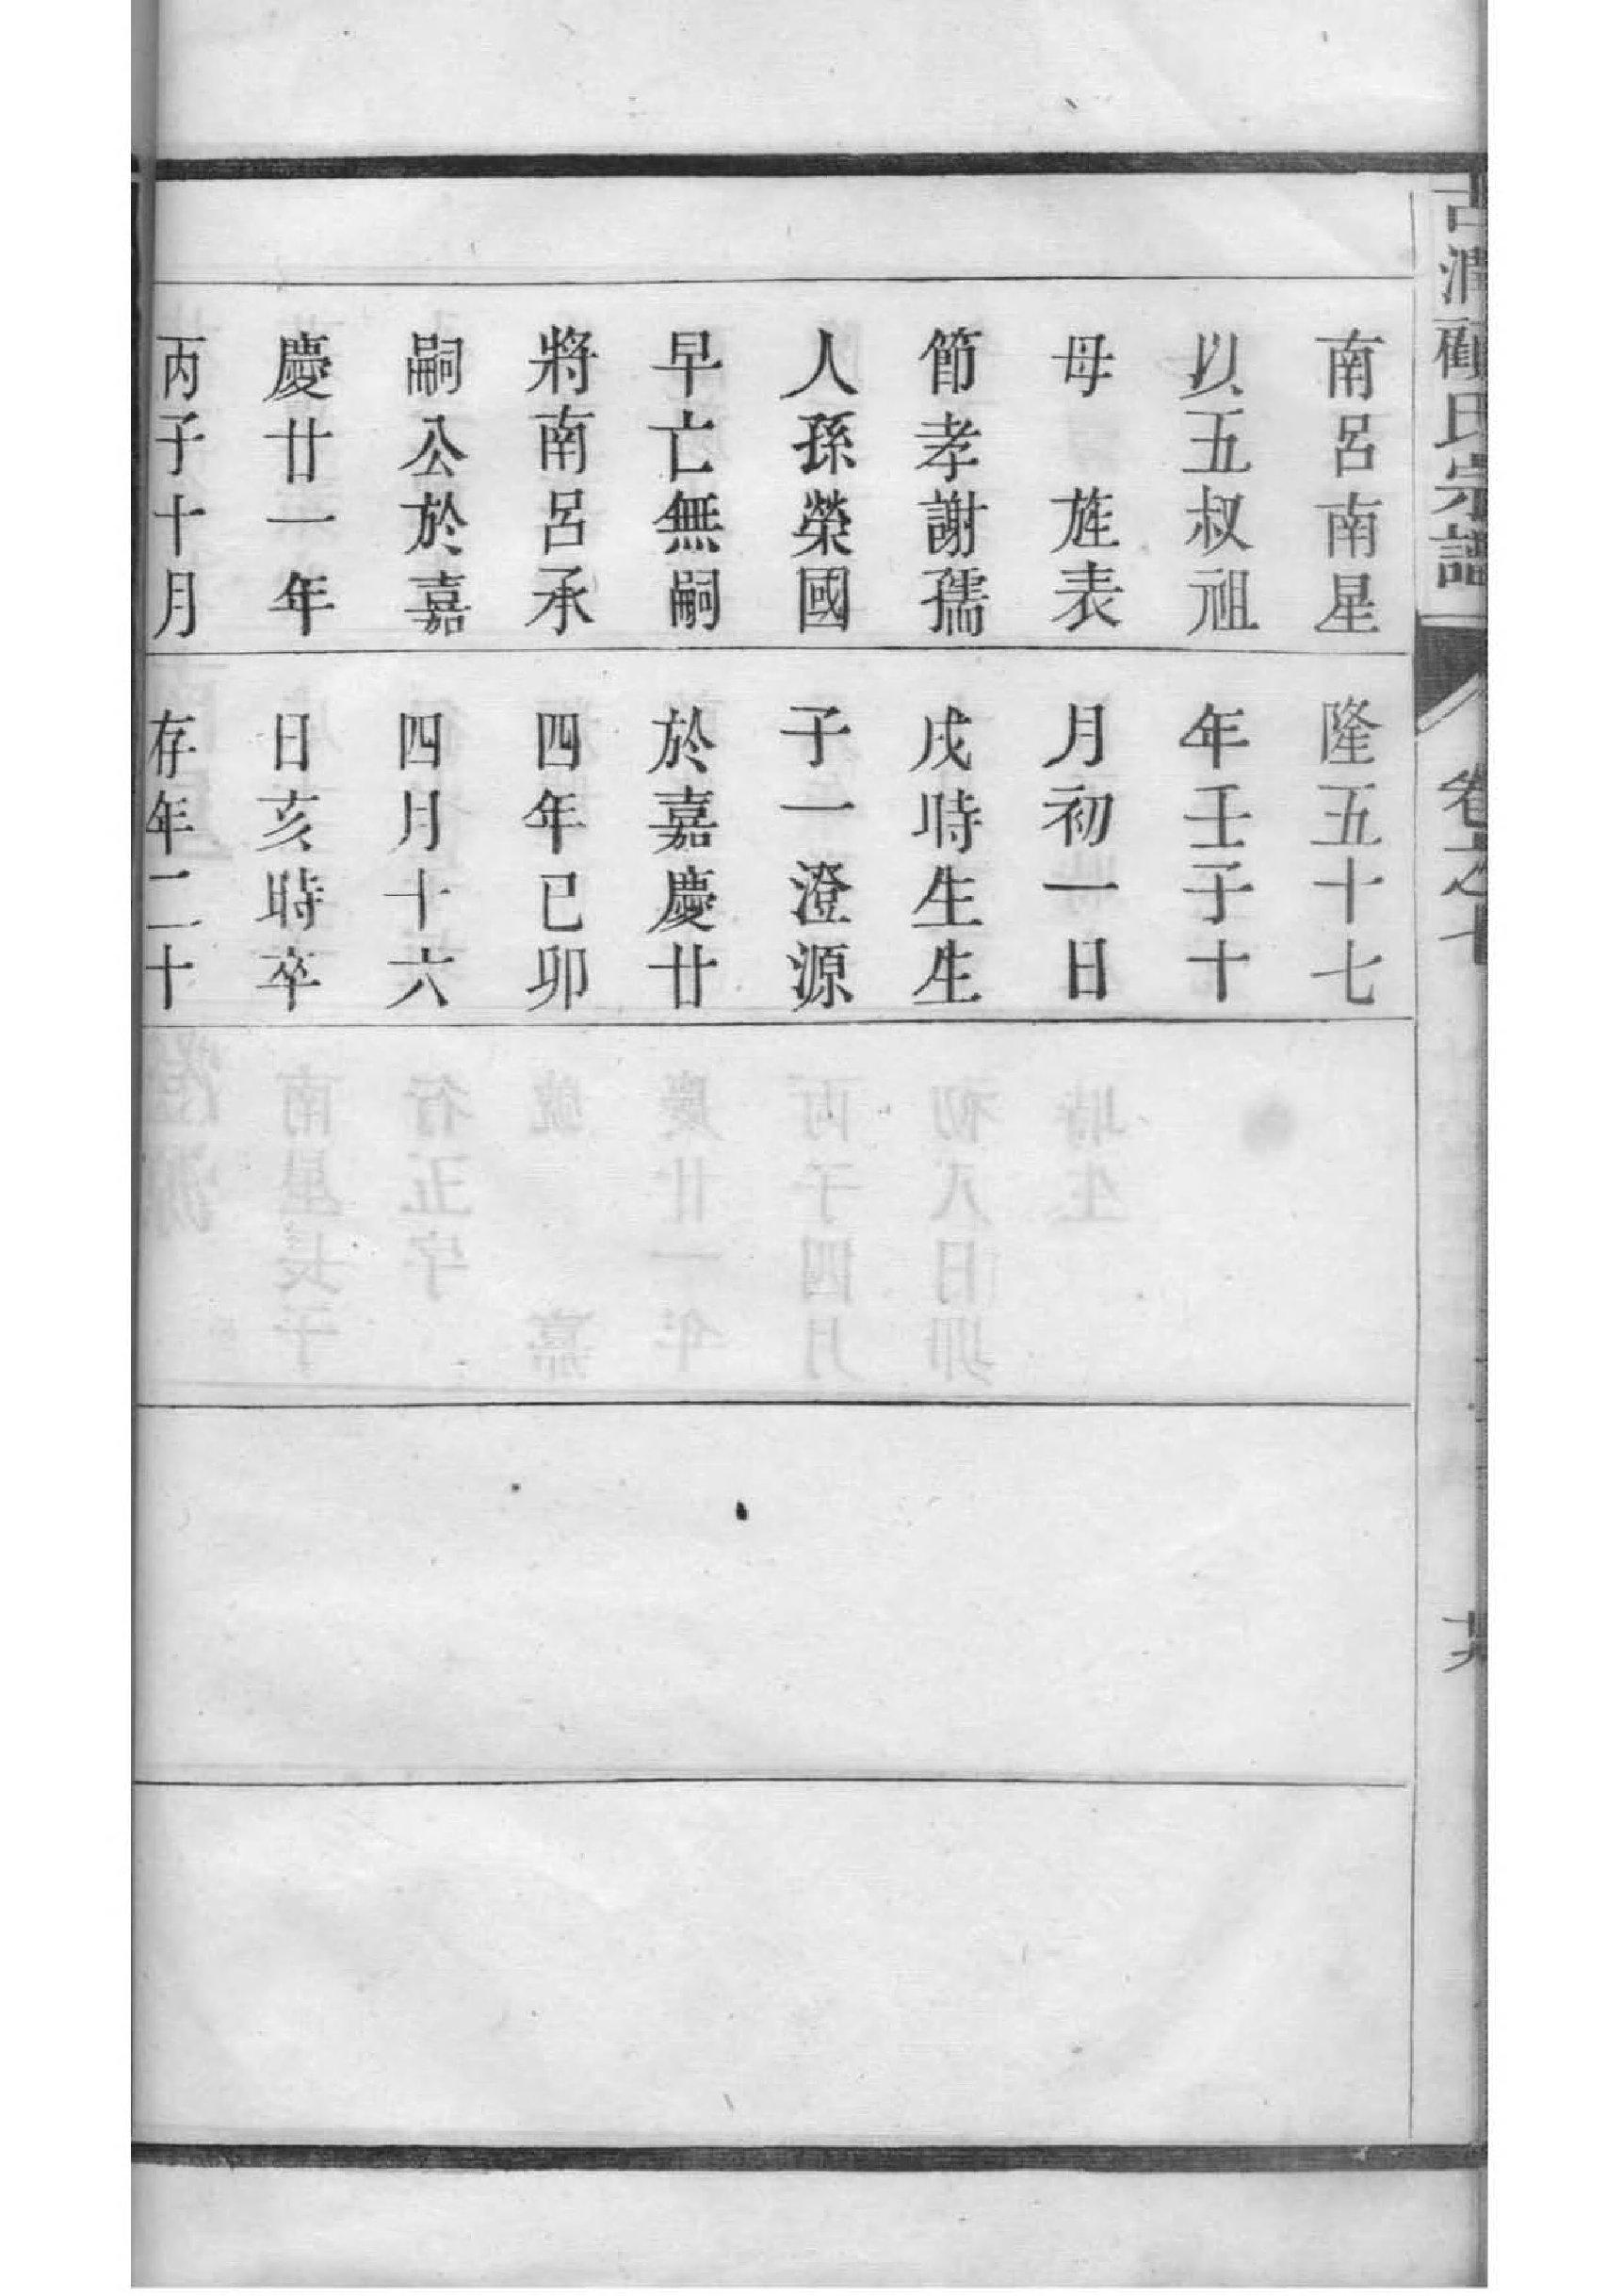 古潤顧氏宗譜
卷之七
南呂南星
以五叔祖
母 旌表
節孝謝孺
人孫榮國
早亡無嗣
將南呂承
嗣公於嘉
慶廿一年
丙子十月
隆五十七
年壬子十
月初一日
戌時生生
子一澄源
於嘉慶廿
四年己卯
四月十六
日亥時卒
存年二十